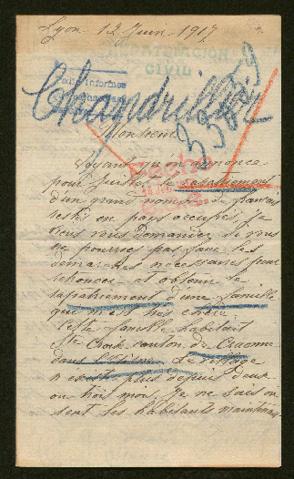 Lyon 12 Juin 1917
CIVIL
Chandrille
Monsieur
Voyant qu'on annonce
pour Juin le rapatriement
d'un grand nombre de français
restés en pays occupés, je
viens vous demander si vous
ne pourriez pas faire les
démarches nécessaires pour
retrouver et obtenir le
rapatriement d'une famille
qui m'est très chère
Cette famille habitait
Ste Croix canton de Craonne
dans l'Aisne. Le village
n'existe plus depuis deux
ou trois mois. Je ne sais où
sont les habitants maintenant